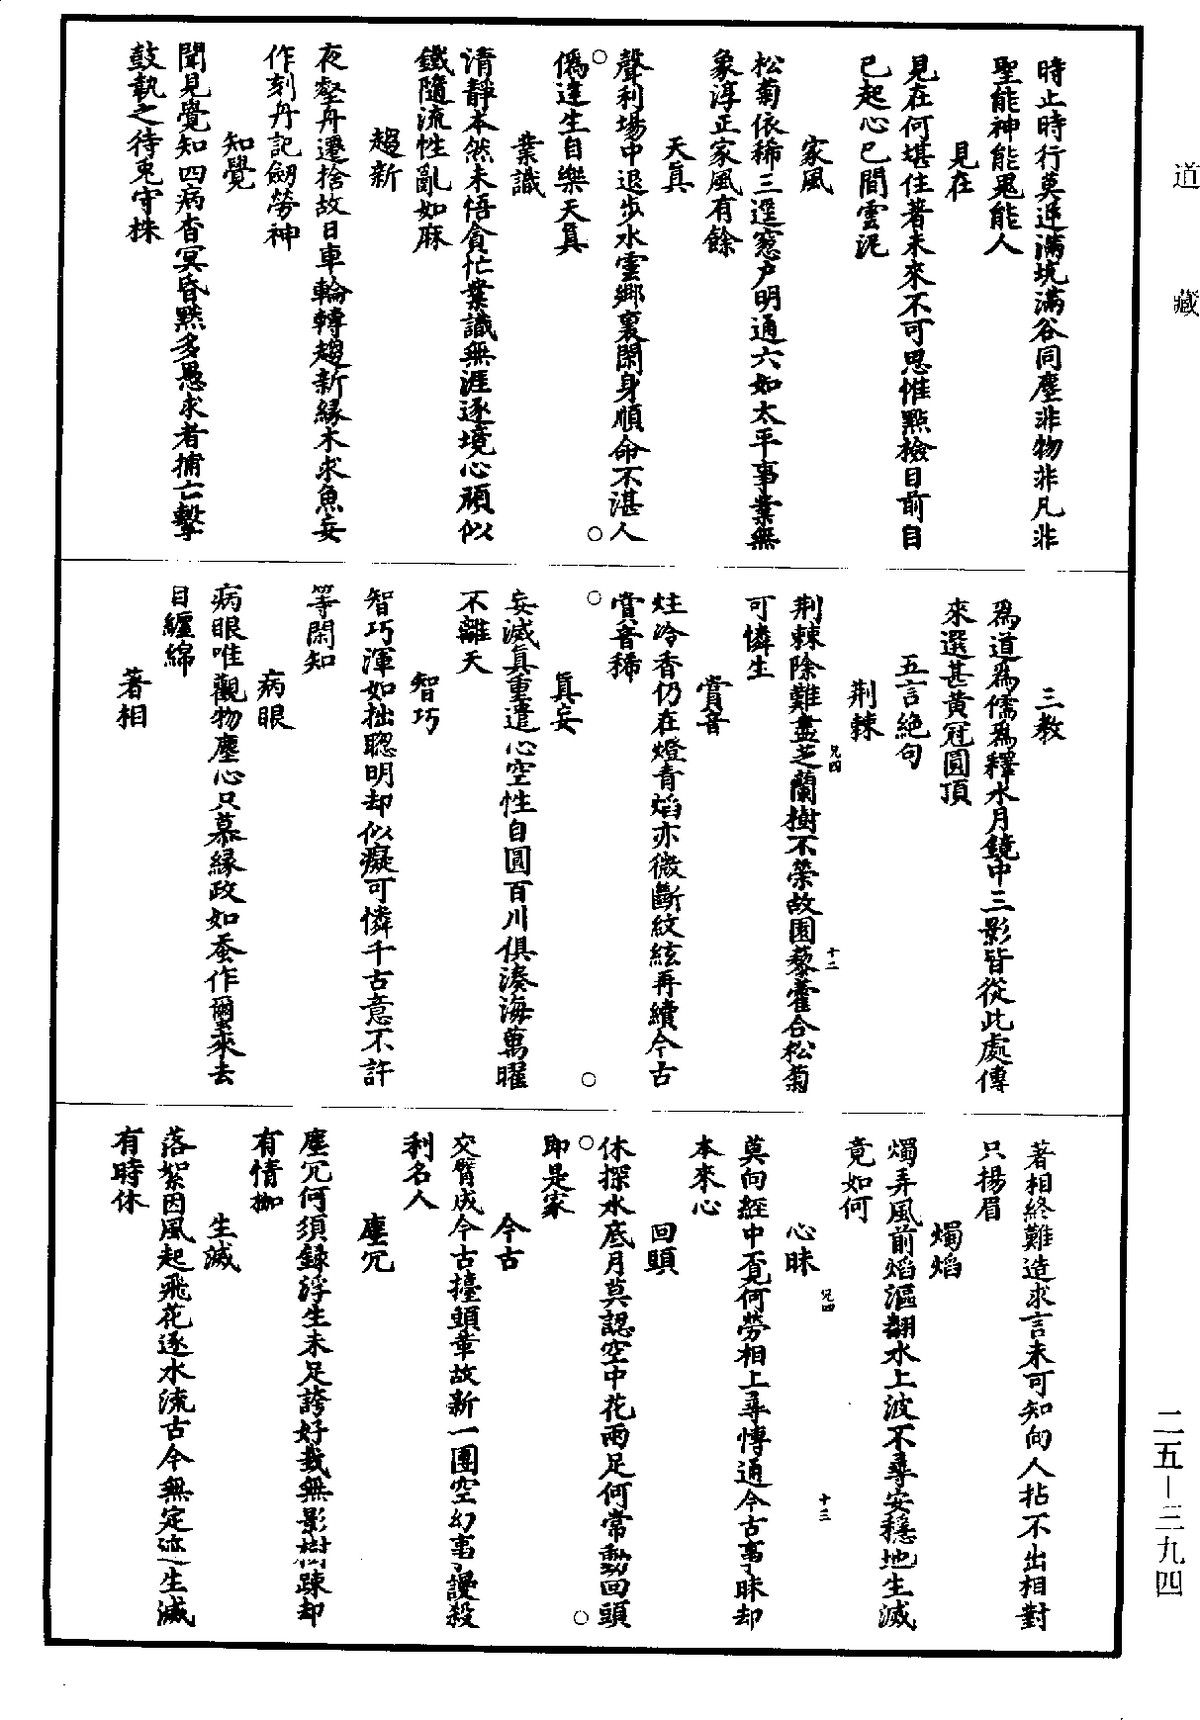 道藏
時止時行莫逆滿坑滿谷同塵非物非凡非
聖能神能鬼能人
見在
見在何堪住著未來不可思惟點檢目前自
已起心已間雲泥
家風
松菊依稀三逕窓戶明通六如太平事業無
象淳正家風有餘
天真
聲利場中退步水雲鄉裏閑身順命不湛人
僞達生自樂天真
業識
清靜本然未悟貪忙業識無涯逐境心頑似
鐵隨流性亂如麻
趨新
夜壑舟遷捨故日車輪轉趨新緣木求魚妄
作刻舟記劒勞神
知覺
聞見覺知四病杳冥昏黙多愚求者捕亡擊
鼓執之待兎守株
三教
爲道爲儒爲釋水月鏡中三影皆從此處傳
來選甚黃冠圓頂
五言絕句
荆棘
荆棘除難盡芝蘭樹不榮故園藜藿合松菊
可憐生
賞音
炷冷香仍在燈青焰亦微斷紋絃再續今古
賞音稀
真妄
妄滅真重遣心空性自圓百川俱湊海萬曜
不離天
智巧
智巧渾如拙聦明却似癡可憐千古意不許
等閑知
病眼
病眼唯觀物塵心只慕緣政如蚕作蠒來去
目纏綿
著相
兄四
十二
著相終難造求言未可知向人拈不出相對
只揚眉
燭焰
燭弄風前焰漚翻水上波不尋安穩地生滅
竟如何
心昧
莫向經中覔何勞相上尋慱通今古事昧却
本來心
回頭
休探水底月莫認空中花兩足何常動回頭
即是家
今古
交臂成今古擡頭革故新一團空幻事謾殺
利名人
塵冗
塵冗何須錄浮生未足誇好栽無影樹踈却
有情枷
生滅
落絮因風起飛花逐水流古今無定迹生滅
有時休
兄四
十三
二五—三九四